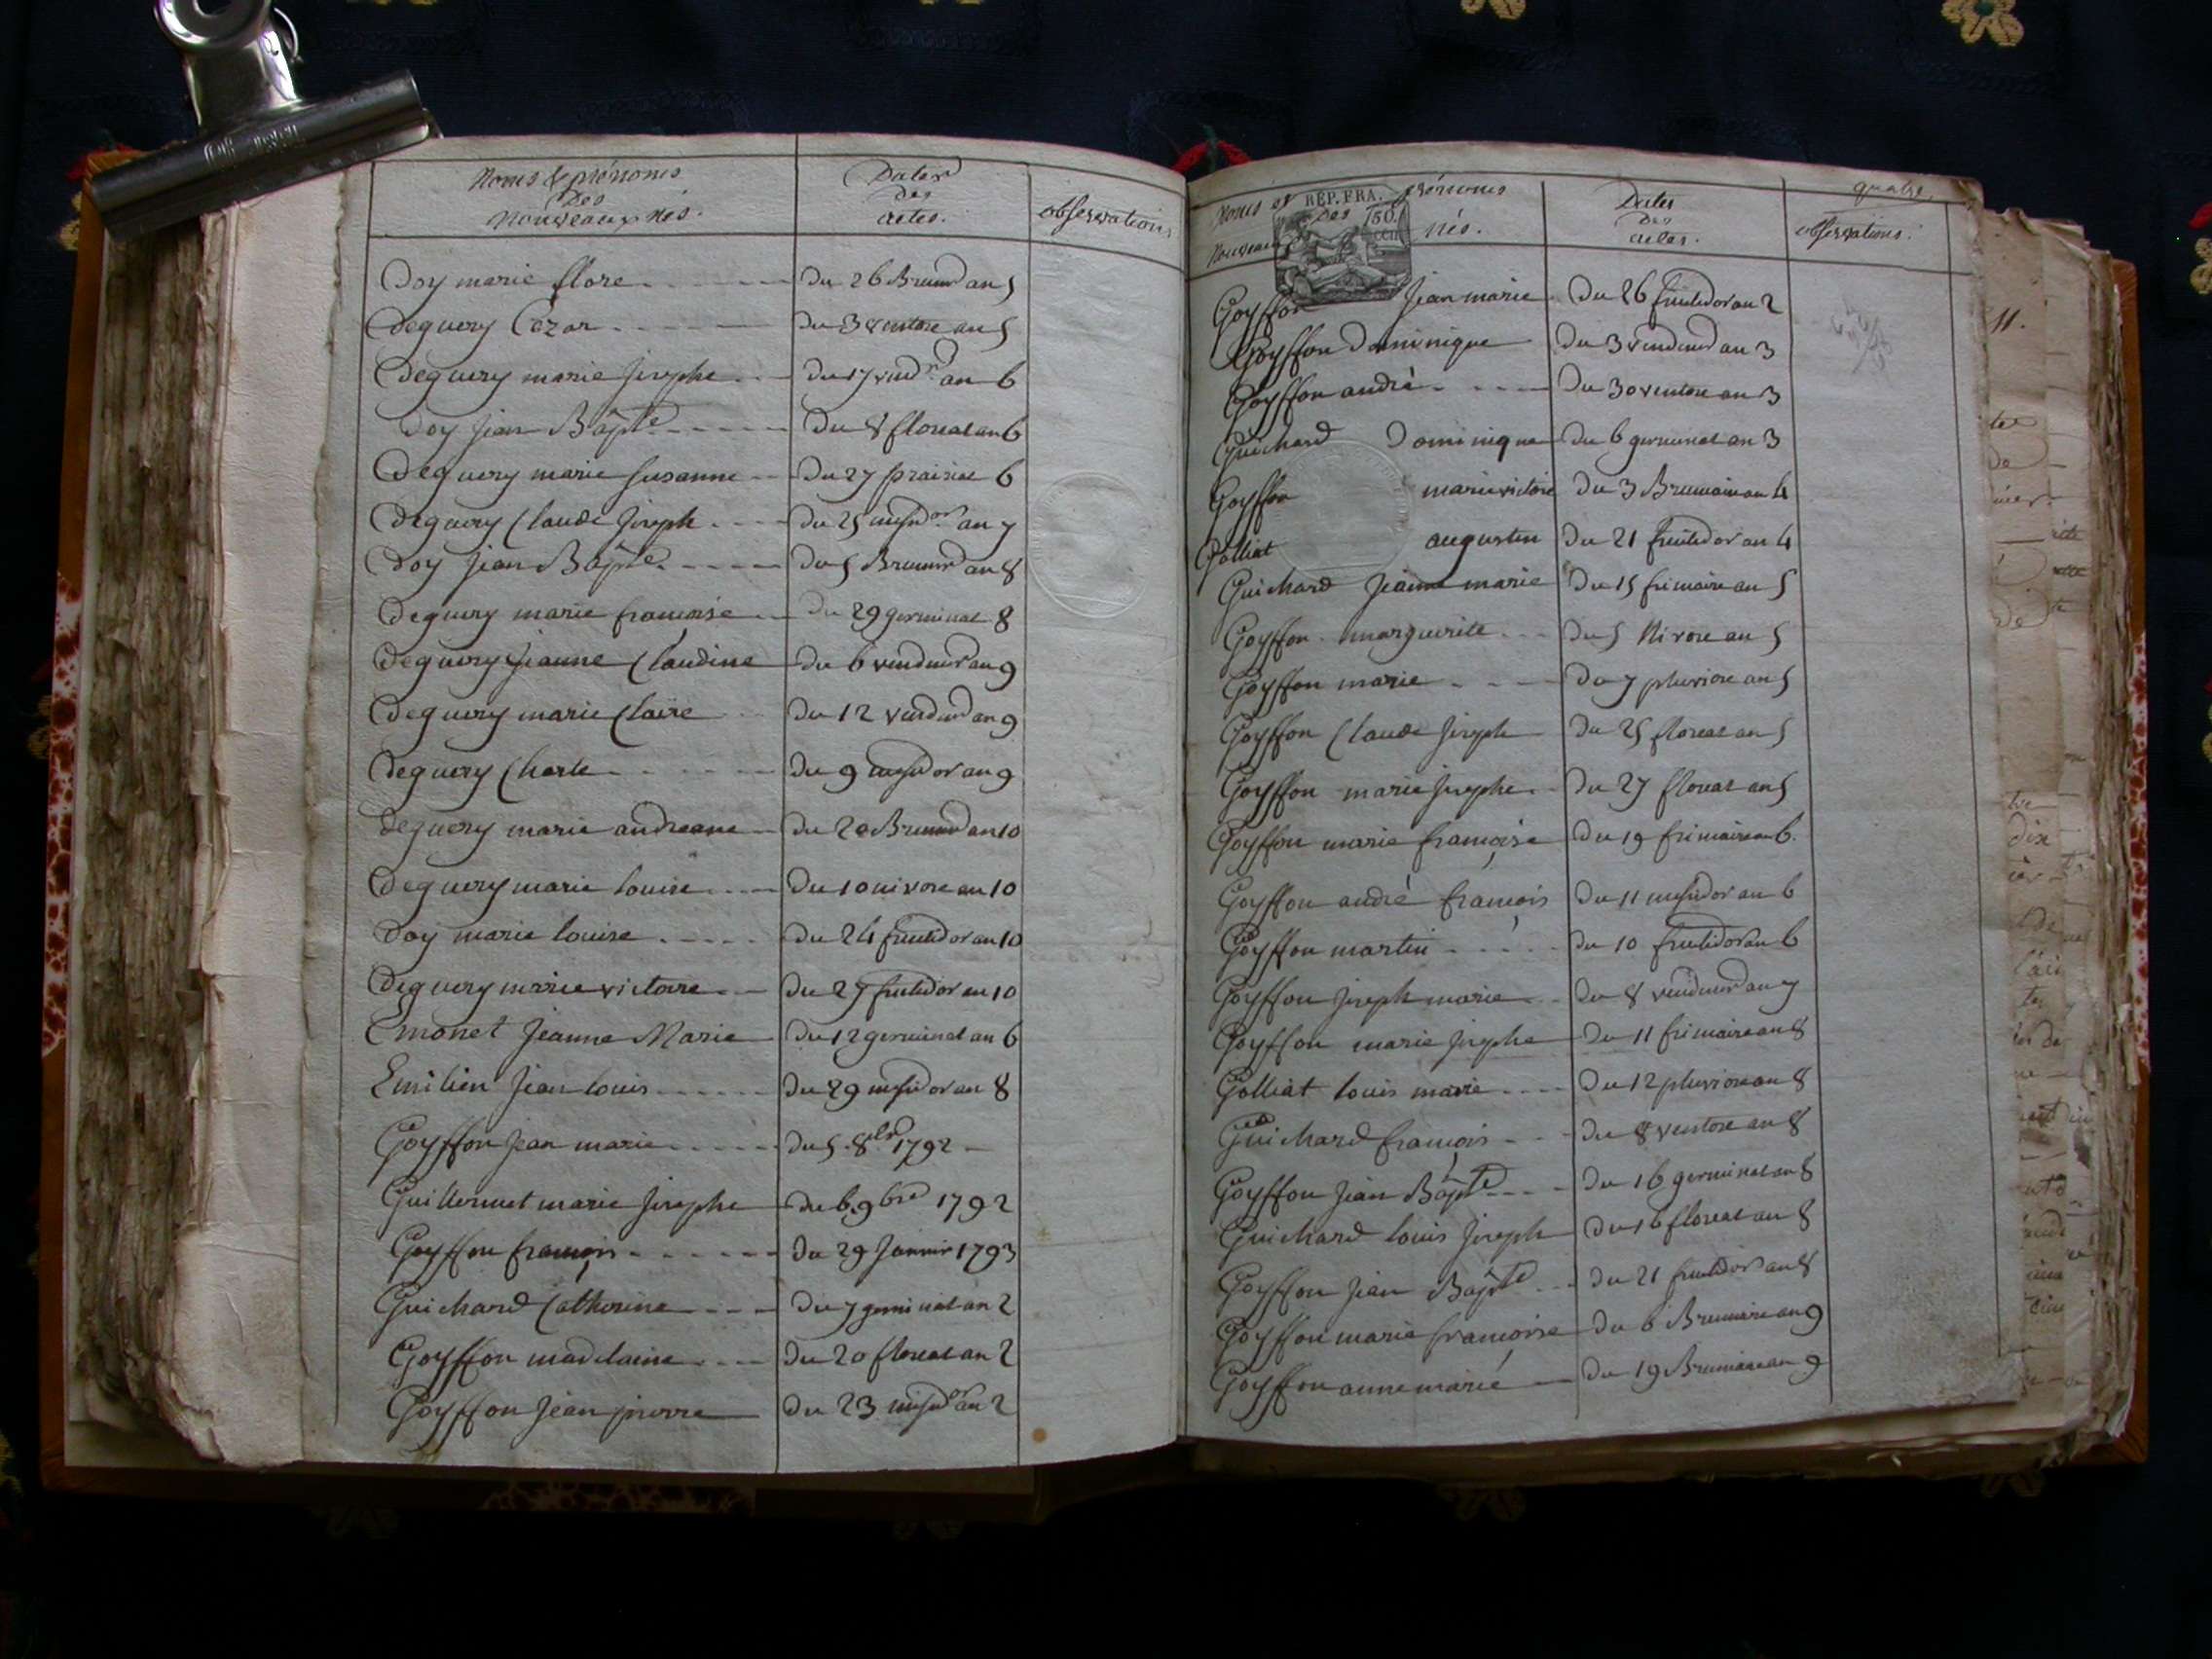 Noms & prénoms
Des
Nouveaux nés.
Dates
des
actes.
observations
Doy marie flore
Du 26 Brumrd an 5
Deguery Cézar
Du 3 ventose an 5
Deguery marie Josephe
Du 17 vendre an 6
Doy Jean Bapte
Du 8 floreal an 6
Deguery marie Susanne
Du 27 prairial 6
Deguery Claude Joseph
Du 25 messidor an 7
Doy Jean Bapte
Du 5 Brumrd an 8
Deguery marie francoise
Du 29 germinal 8
Deguery Jeanne Claudine
Du 6 vendmrd an 9
Deguery marie Claire
Du 12 vendmrd an 9
Deguery Charle
Du 9 messidor an 9
Deguery marie andreane
Du 20 Brumrd an 10
Deguery marie louise
Du 10 nivose an 10
Doy marie louise
Du 24 fructidor an 10
Deguery marie victoire
Du 27 fructidor an 10
Emonet Jeanne Marie
Du 12 germinal an 6
Emilien Jean louis
Du 29 messidor an 8
Goyffon Jean marie
Du 5 8bre 1792
Guillermet marie Josephe
Du 6 9bre 1792
Goyffon françois
Du 29 Janvier 1793
Guichard Catherine
Du 7 germinal an 2
Goyffon madelaine
Du 20 floreal an 2
Goyffon Jean pierre
Du 23 messidor an 2
quatre
Noms et prénoms
Des
Nouveaux nés.
REP. FRA.
50
Dates
Des
actes.
observations.
Goyffon Jean marie
Du 26 fructidor an 2
Goyffon Dominique
Du 3 vendmrd an 3
Goyffon andré
Du 30 ventose an 3
Guichard Dominique
Du 6 germinal an 3
Goyffon marie victoire
Du 3 Brumaire an 4
Golliat augustin
Du 21 fructidor an 4
Guichard Jeanne marie
Du 15 frimaire an 5
Goyffon marguerite
Du 5 Nivose an 5
Goyffon marie
Du 7 pluviose an 5
Goyffon Claude Joseph
Du 25 floreal an 5
Goyffon marie Josephe
Du 27 floreal an 5
Goyffon marie françoise
Du 19 frimaire an 6.
Goyffon andré françois
Du 11 messidor an 6
Goyffon martin
Du 10 fructidor an 6
Goyffon Joseph marie
Du 8 vendmrd an 7
Goyffon marie Josephe
Du 11 frimaire an 8
Golliat louis marie
Du 12 pluviose an 8
Guichard françois
Du 8 ventose an 8
Goyffon Jean Bapte
Du 16 germinal an 8
Guichard louis Joseph
Du 16 floreal an 8
Goyffon Jean Bapte
Du 21 fructidor an 8
Goyffon marie françoise
Du 6 Brumaire an 9
Goyffon anne marie
Du 19 Brumaire an 9